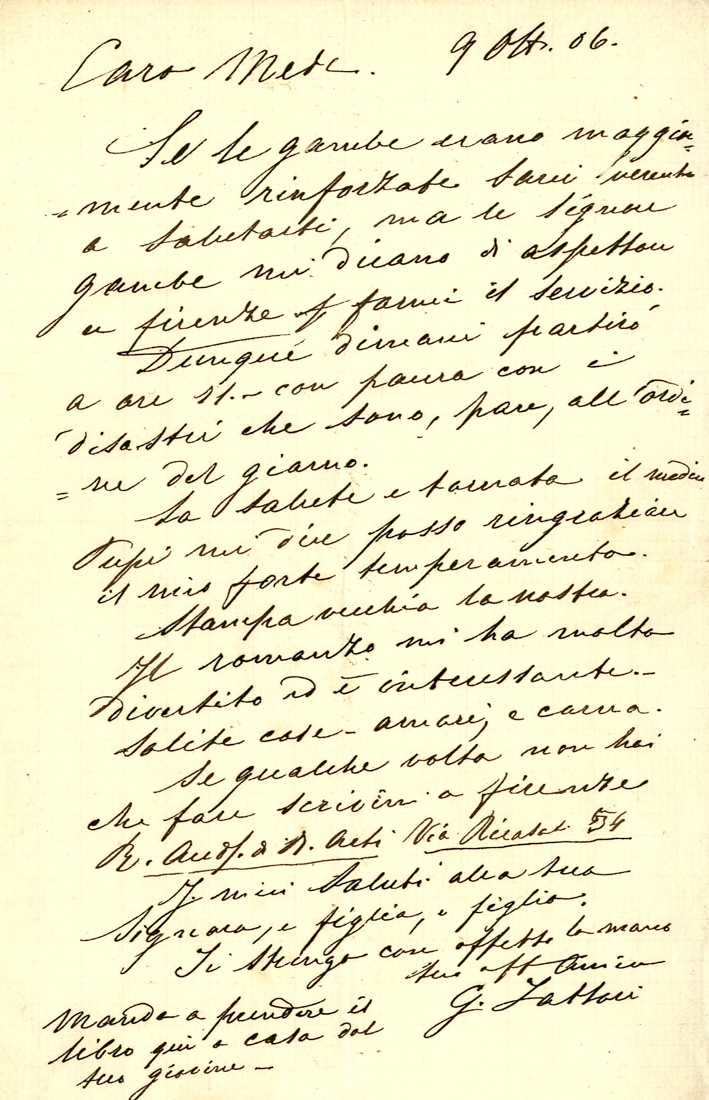 Caro Mede. 9 Ott. 06.
Se le gambe erano maggior=
=mente rinforzate sarei venuto
a salutarti, ma le signore
gambe mi dicano di aspettare
a firenze p farmi il servizio.
Dunque dimani partirò
a ore 11.- con paura con i
disastri che sono, pare, all'ordi=
=ne del giorno.
La salute e tornata il medico
mi dice posso ringraziare
il mio forte temperamento.
Stampa vecchia la nostra.
Il romanzo mi ha molto
divertito ed è interessante.-
Solite cose - amori, e carna.
Se qualche volta non hai
che fare scrivimi a firenze
R. Accad. di B. Arti Via Ricasoli 54
I miei saluti alla tua
Signora, e figlia, e figlio.
Ti stringo con affetto la mano
tuo aff Amico
G. Fattori
Manda a prendere il
libro qui a casa dal
tuo giovine -